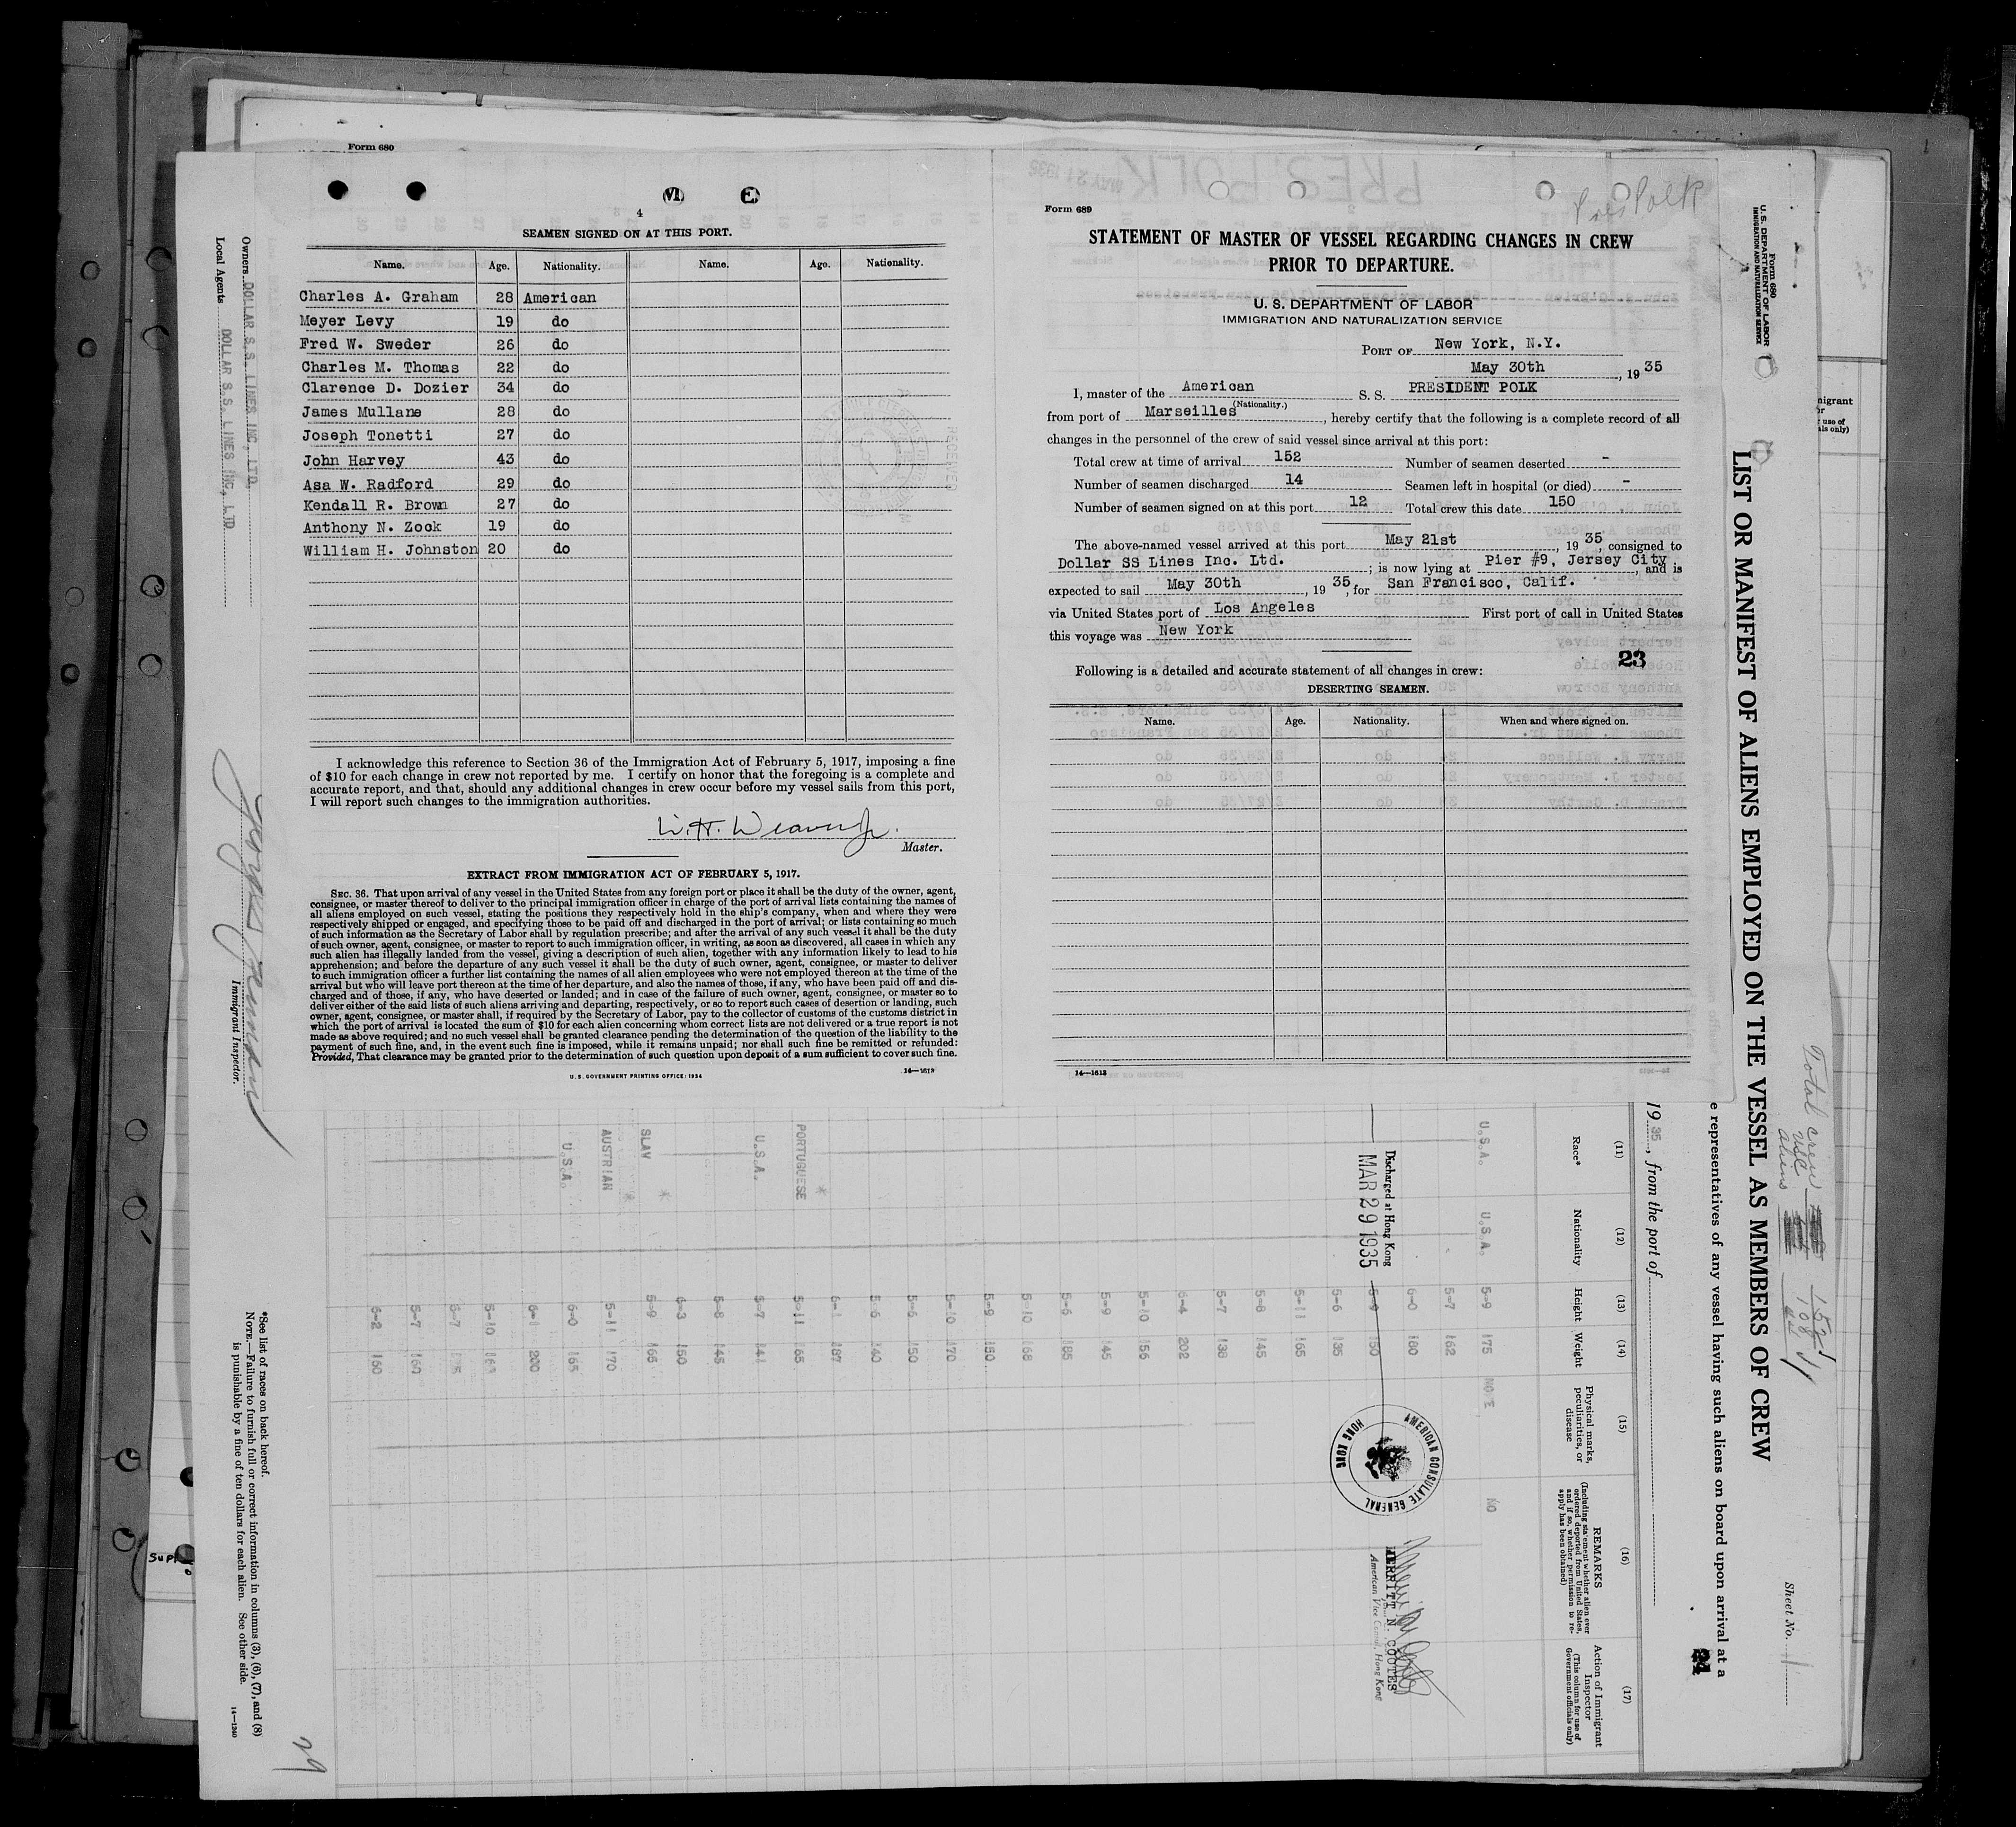 Form 680
4
SEAMEN SIGNED ON AT THIS PORT.
Name. Age. Nationality. Name. Age. Nationality.
Charles A. Graham 28 American
Meyer Levy 19 do
Fred W. Sweder 26 do
Charles M. Thomas 22 do
Clarence D. Dozier 34 do
James Mullane 28 do
Joseph Tonetti 27 do
John Harvey 43 do
Asa W. Radford 29 do
Kendall R. Brown 27 do
Anthony N. Zook 19 do
William H. Johnston 20 do
I acknowledge this reference to Section 36 of the Immigration Act of February 5, 1917, imposing a fine
of $10 for each change in crew not reported by me. I certify on honor that the foregoing is a complete and
accurate report, and that, should any additional changes in crew occur before my vessel sails from this port,
I will report such changes to the immigration authorities.
W. H. Weaver Jr.
Master.
EXTRACT FROM IMMIGRATION ACT OF FEBRUARY 5, 1917.
SEC. 36. That upon arrival of any vessel in the United States from any foreign port or place it shall be the duty of the owner, agent,
consignee, or master thereof to deliver to the principal immigration officer in charge of the port of arrival lists containing the names of
all aliens employed on such vessel, stating the positions they respectively hold in the ship's company, when and where they were
respectively shipped or engaged, and specifying those to be paid off and discharged in the port of arrival; or lists containing so much
of such information as the Secretary of Labor shall by regulation prescribe; and after the arrival of any such vessel it shall be the duty
of such owner, agent, consignee, or master to report to such immigration officer, in writing, as soon as discovered, all cases in which any
such alien has illegally landed from the vessel, giving a description of such alien, together with any information likely to lead to his
apprehension; and before the departure of any such vessel it shall be the duty of such owner, agent, consignee, or master to deliver
to such immigration officer a further list containing the names of all alien employees who were not employed thereon at the time of the
arrival but who will leave port thereon at the time of her departure, and also the names of those, if any, who have been paid off and dis-
charged and of those, if any, who have deserted or landed; and in case of the failure of such owner, agent, consignee, or master so to
deliver either of the said lists of such aliens arriving and departing, respectively, or so to report such cases of desertion or landing, such
owner, agent, consignee, or master shall, if required by the Secretary of Labor, pay to the collector of customs of the customs district in
which the port of arrival is located the sum of $10 for each alien concerning whom correct lists are not delivered or a true report is not
made as above required; and no such vessel shall be granted clearance pending the determination of the question of the liability to the
payment of such fine, and, in the event such fine is imposed, while it remains unpaid; nor shall such fine be remitted or refunded:
Provided, That clearance may be granted prior to the determination of such question upon deposit of a sum sufficient to cover such fine.
U. S. GOVERNMENT PRINTING OFFICE: 1934 14—1613
Pres Polk
Form 689
STATEMENT OF MASTER OF VESSEL REGARDING CHANGES IN CREW
PRIOR TO DEPARTURE.
U. S. DEPARTMENT OF LABOR
IMMIGRATION AND NATURALIZATION SERVICE
PORT OF New York, N.Y.
May 30th, 1935
I, master of the American S. S. PRESIDENT POLK
(Nationality.)
from port of Marseilles, hereby certify that the following is a complete record of all
changes in the personnel of the crew of said vessel since arrival at this port:
Total crew at time of arrival 152 Number of seamen deserted -
Number of seamen discharged 14 Seamen left in hospital (or died) -
Number of seamen signed on at this port 12 Total crew this date 150
The above-named vessel arrived at this port May 21st, 1935, consigned to
Dollar SS Lines Inc. Ltd.; is now lying at Pier #9, Jersey City, and is
expected to sail May 30th, 1935, for San Francisco, Calif.
via United States port of Los Angeles First port of call in United States
this voyage was New York
23
Following is a detailed and accurate statement of all changes in crew:
DESERTING SEAMEN.
Name. Age. Nationality. When and where signed on.
14—1613
Form 680
U. S. DEPARTMENT OF LABOR
IMMIGRATION AND NATURALIZATION SERVICE
LIST OR MANIFEST OF ALIENS EMPLOYED ON THE VESSEL AS MEMBERS OF CREW
Sheet No. 1
Total crew 152
USC 108
aliens 44
e representatives of any vessel having such aliens on board upon arrival at a
24
1935, from the port of
(11) (12) (13) (14) (15) (16) (17)
Race* Nationality Height Weight Physical marks, peculiarities, or disease
REMARKS
(Including statement whether alien ever ordered deported from United States, and if so, whether permission to re-apply has been obtained)
Action of Immigrant Inspector
(This column for use of Government officials only)
U.S.A. U.S.A. 5-9 175 NONE NO
5-7 162
6-0 180
Discharged at Hong Kong
MAR 29 1935
5-9 150
AMERICAN CONSULATE GENERAL
HONG KONG
MERRITT N. COOTES
American Vice Consul, Hong Kong
5-6 135
5-11 165
5-8 145
5-7 138
6-4 202
5-10 156
5-9 145
5-6 185
5-10 168
5-9 150
5-10 170
5-6 150
5-6 140
6-1 187
PORTUGUESE 5-11 165
U.S.A. 5-7 141
5-8 145
6-3 150
SLAV 5-9 165
AUSTRIAN 5-11 170
U.S.A. 6-0 165
6-1 200
5-10
5-7
5-7 160
6-2 160
Owners DOLLAR S.S. LINES INC., LTD.
Local Agents DOLLAR S.S. LINES INC., LTD.
Immigrant Inspector.
*See list of races on back hereof.
NOTE.—Failure to furnish full or correct information in columns (3), (6), (7), and (8)
is punishable by a fine of ten dollars for each alien. See other side.
14—1240
29